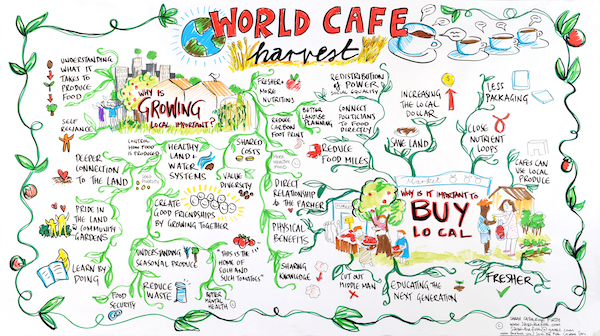 WORLD CAFE
harvest
UNDERSTANDING
WHAT IT
TAKES TO
PRODUCE
FOOD
SELF
RELIANCE
DEEPER
CONNECTION
TO THE LAND
PRIDE IN
THE LAND
COMMUNITY
GARDENS
LEARN BY
DOING
FOOD
SECURITY
WHY IS
GROWING
LOCAL IMPORTANT?
CONTROL
HOW FOOD
IS PRODUCED
HEALTHY
LAND +
WATER
SYSTEMS
SHARED
COSTS
VALUE
DIVERSITY
CREATE
GOOD FRIENDSHIPS
BY GROWING TOGETHER
UNDERSTANDING
SEASONAL PRODUCE
REDUCE
WASTE
"THIS IS THE
HOME OF
SUCH AND
SUCH TOMATOES"
BETTER
MENTAL
HEALTH
FRESHER +
MORE
NUTRITIOUS
REDUCE
CARBON
FOOT PRINT
BETTER
LANDUSE
PLANNING
REDISTRIBUTION
OF POWER
SOCIAL EQUALITY
CONNECT
POLITICIANS
TO FOOD
DIRECTLY
REDUCE
FOOD MILES
DIRECT
RELATIONSHIP
TO THE FARMER
PHYSICAL
BENEFITS
SHARING
KNOWLEDGE
INCREASING
THE LOCAL
DOLLAR
SAVE LAND
LESS
PACKAGING
CLOSE
NUTRIENT
LOOPS
CAFES CAN
USE LOCAL
PRODUCE
Market
WHY IS IT IMPORTANT TO
BUY
LOCAL
CUT OUT
MIDDLE MAN
EDUCATING THE
NEXT GENERATION
FRESHER